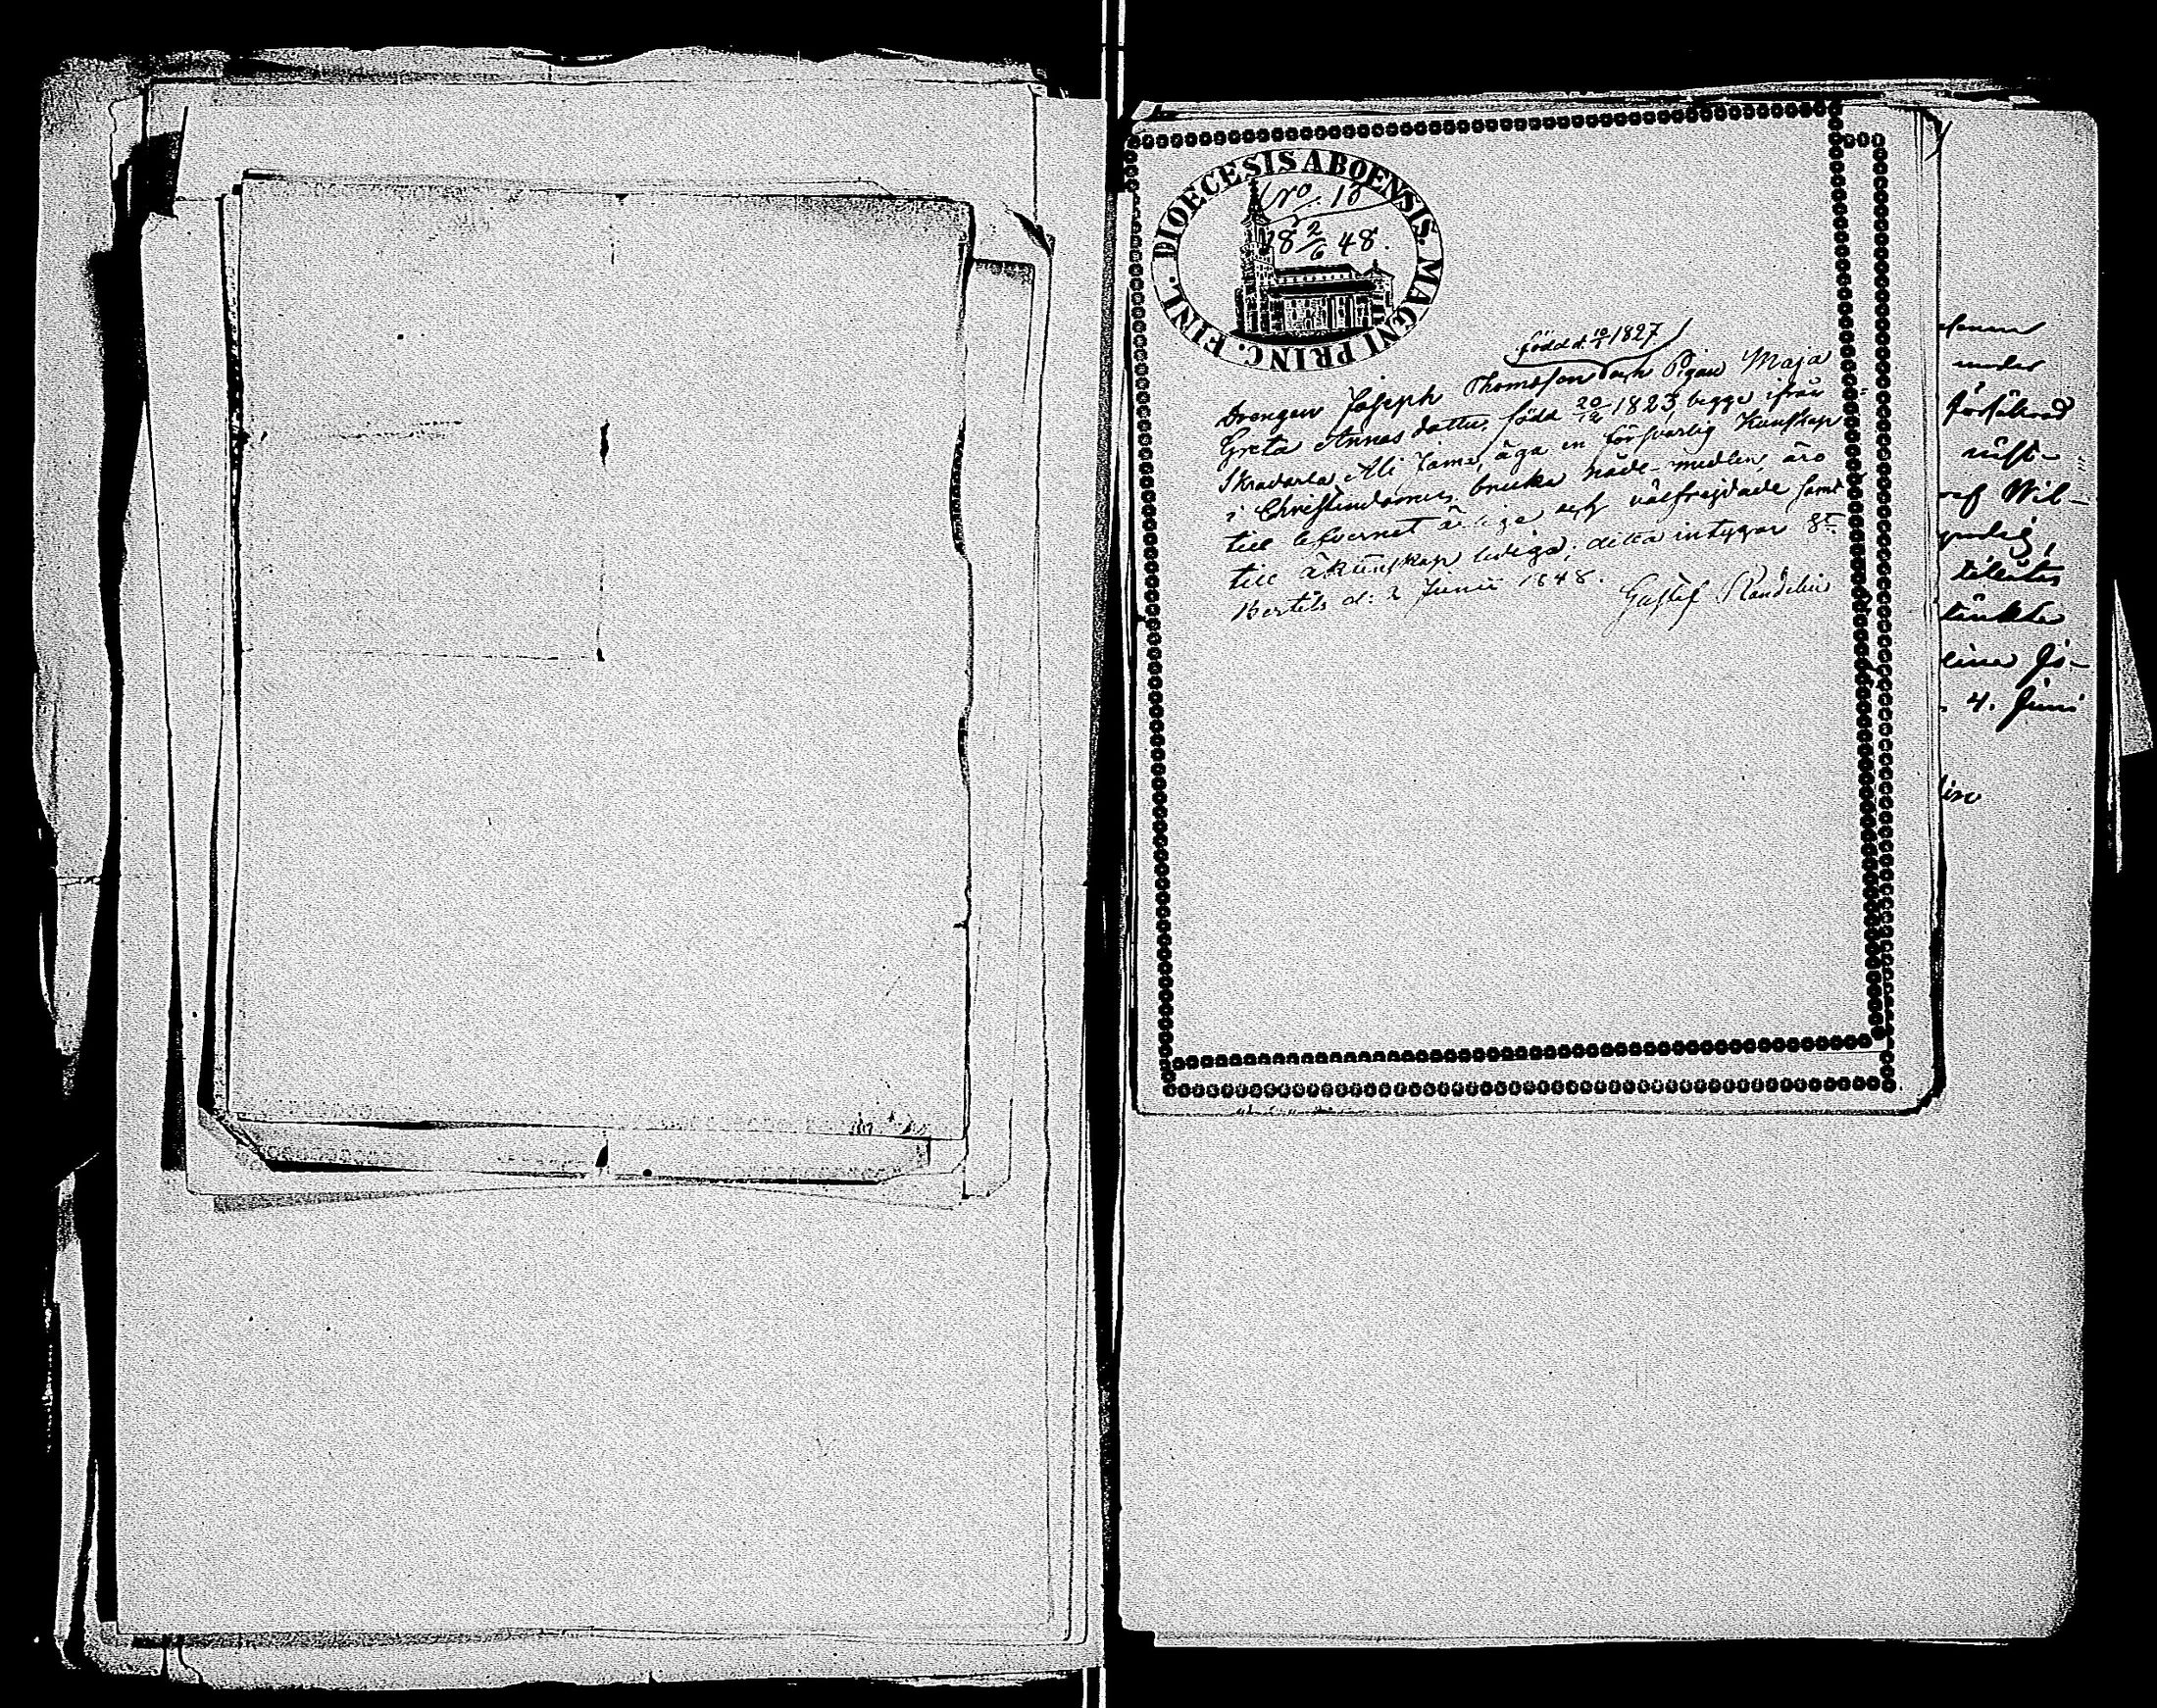 DIOECESIS ABOENSIS. MAGNI PRINC. FINL.
No. 13
18 2/6 48.
född d. 10/1 1827
Drengen Joseph Thomsson och Pigan Maja
Greta Annas dotter, född 20/12 1823, begge ifrån
Skradarla Ali Jama, äga en försvarlig Kunskap
i Christendomen, bruka nåde-medlen, äro
till lefvernet ärlige och välfrejdade samt
till äktenskap lediga; detta intygar St
Bertils d: 2 Junii 1848.
Gustaf Randelin
under
försäkrad
af Wil-
tänkta
4. Juni